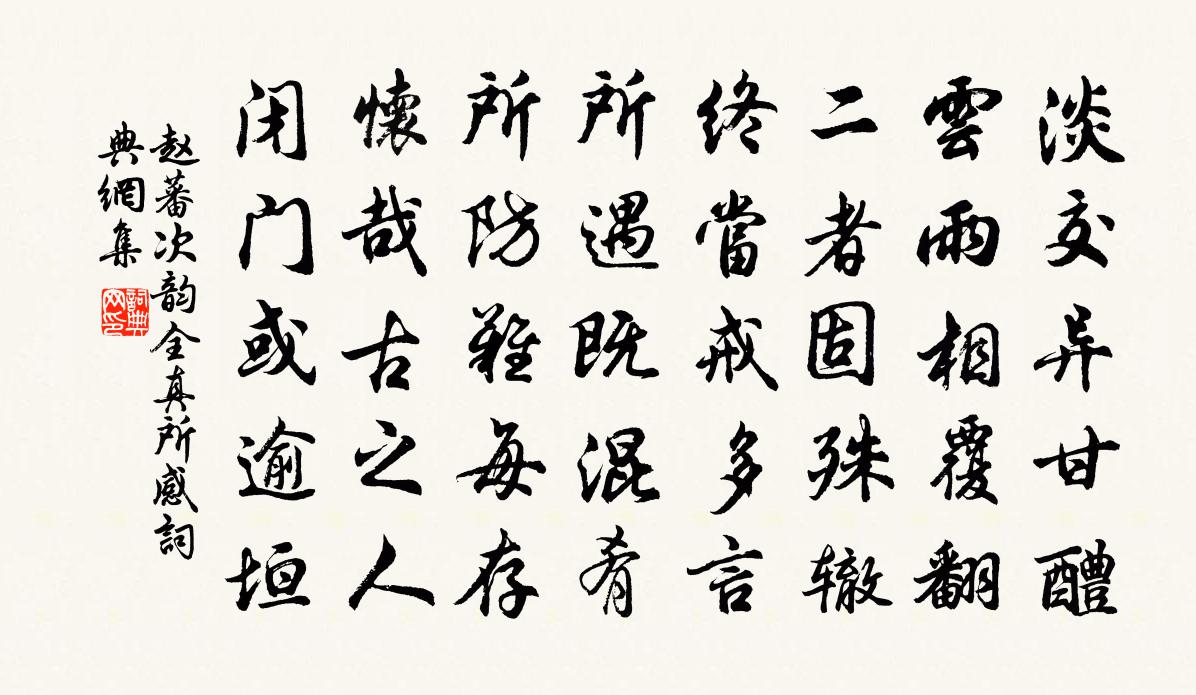 淡交异甘醴
雲雨相覆翻
二者固殊辙
终當戒多言
所遇既混肴
所防難每存
懷哉古之人
闭门或逾垣
赵蕃次韵全真所感詞
典網集
詞典
网印